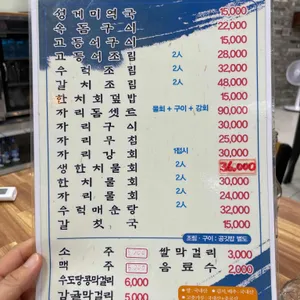 성게미역국 15,000
수돔구이 22,000
고등어구이 15,000
고등어조림 2人 28,000
우럭조림 2人 32,000
갈치조림 2人 48,000
한치회덮밥 15,000
자리돔셋트 물회+구이+강회 90,000
자리구이 30,000
자리무침 25,000
자리강회 1접시 30,000
생한치물회 2人 36,000
한치물회 2人 30,000
자리물회 2人 24,000
우럭매운탕 2人 32,000
갈칫국 15,000
조림 · 구이 : 공깃밥 별도
소주
맥주
우도땅콩막걸리 6,000
감귤막걸리 5,000
쌀막걸리 3,000
음료수 2,000